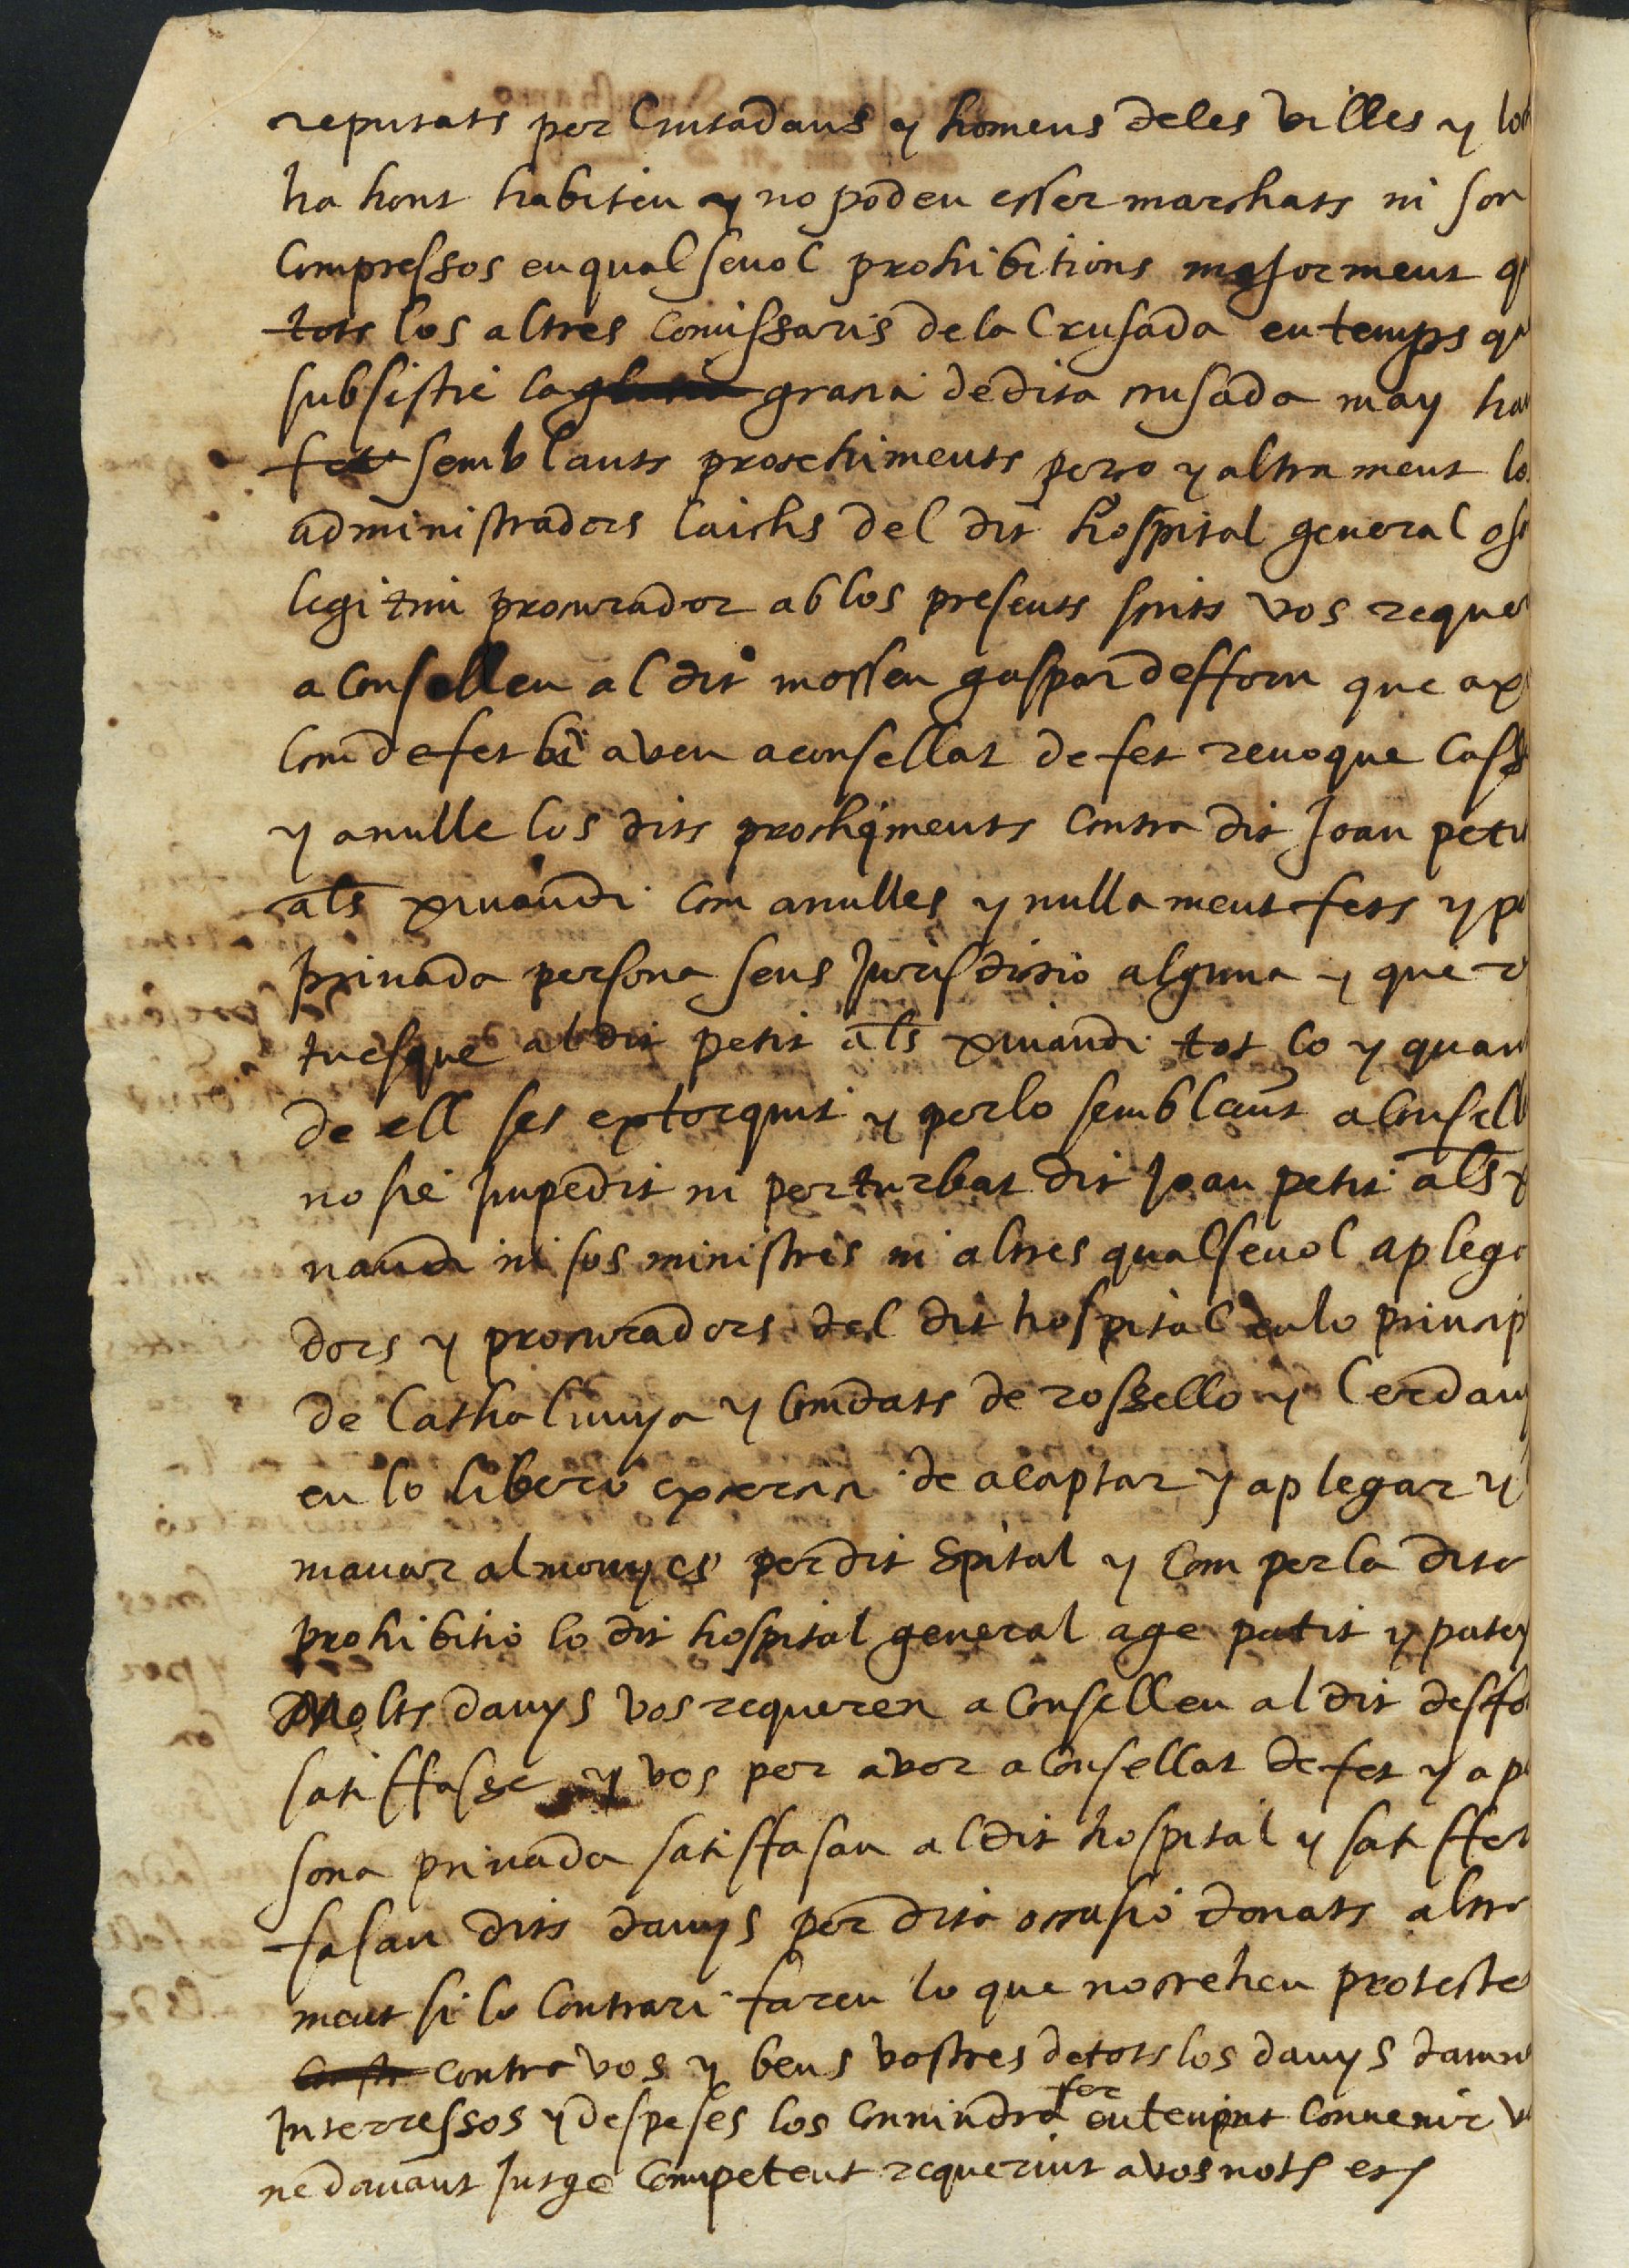 reputats per Ciutadans y homens deles villes y loch
ha hont habiteu y no podeu esser marchats ni son
compressos en qualsevol prohibitions majorment q
tots los altres comissaris de la Crusada en temps q
subsistie la gracia de dita crusada may han
fet semblants prochiments pero y altrament lo
administradors laichs del dit hospital general o
legitim procurador ab los presents scrits vos reque
aconselleu al dit mossen gaspar desforn que ax
com de fet hi aveu aconsellat de fet revoque casse
y anulle los dits prochiments contra dit Joan petit
als xivandi com anulles y nullament fets y p
privada persona sens jurisdictio alguna y que r
tuesque al dit petit als xivandi tot lo y quan
de ell ses extorquit y per lo semblant aconsell
no sie Impedit ni perturbat dit Joan petit als x
nandi ni sos ministres ni altres qualsevol aplega
dors y procuradors del dit hospital en lo princip
de Cathalunya y Comdats de rossello y Cerdany
en lo libero exercici de acaptar y aplegar y
manar almoynes per dit Spital y com per la dita
prohibitio lo dit hospital general age patit y patey
Molts danys vos requeren aconselleu al dit desfo
satisfasse y vos per aver aconsellat de fet y a p
sona privada satisfasau al dit hospital y satisffer
fasau dits danys per dita occasio donats altra
ment si lo contrari fareu lo que no creheu proteste
contra vos y bens vostres de tots los danys damn
Interressos y despeses los convindra fer entenint convenir v
ne davant Jutge Competent requerint a vos not etc